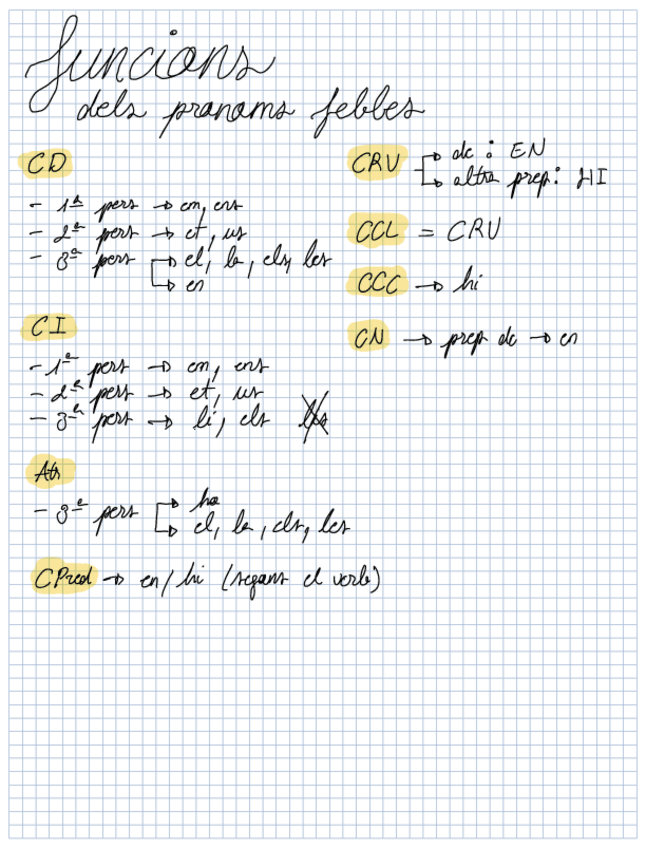 funcions
dels pronoms febles
CD
- 1ª pers → em, ens
- 2ª pers → et, us
- 3ª pers → el, la, els, les
→ en
CI
- 1ª pers → em, ens
- 2ª pers → et, us
- 3ª pers → li, els
Atr
- 3ª pers → ho
→ el, la, els, les
CPred → en/hi (segons el verb)
CRV → de : EN
→ altra prep: HI
CCL = CRV
CCC → hi
CN → prep de → en